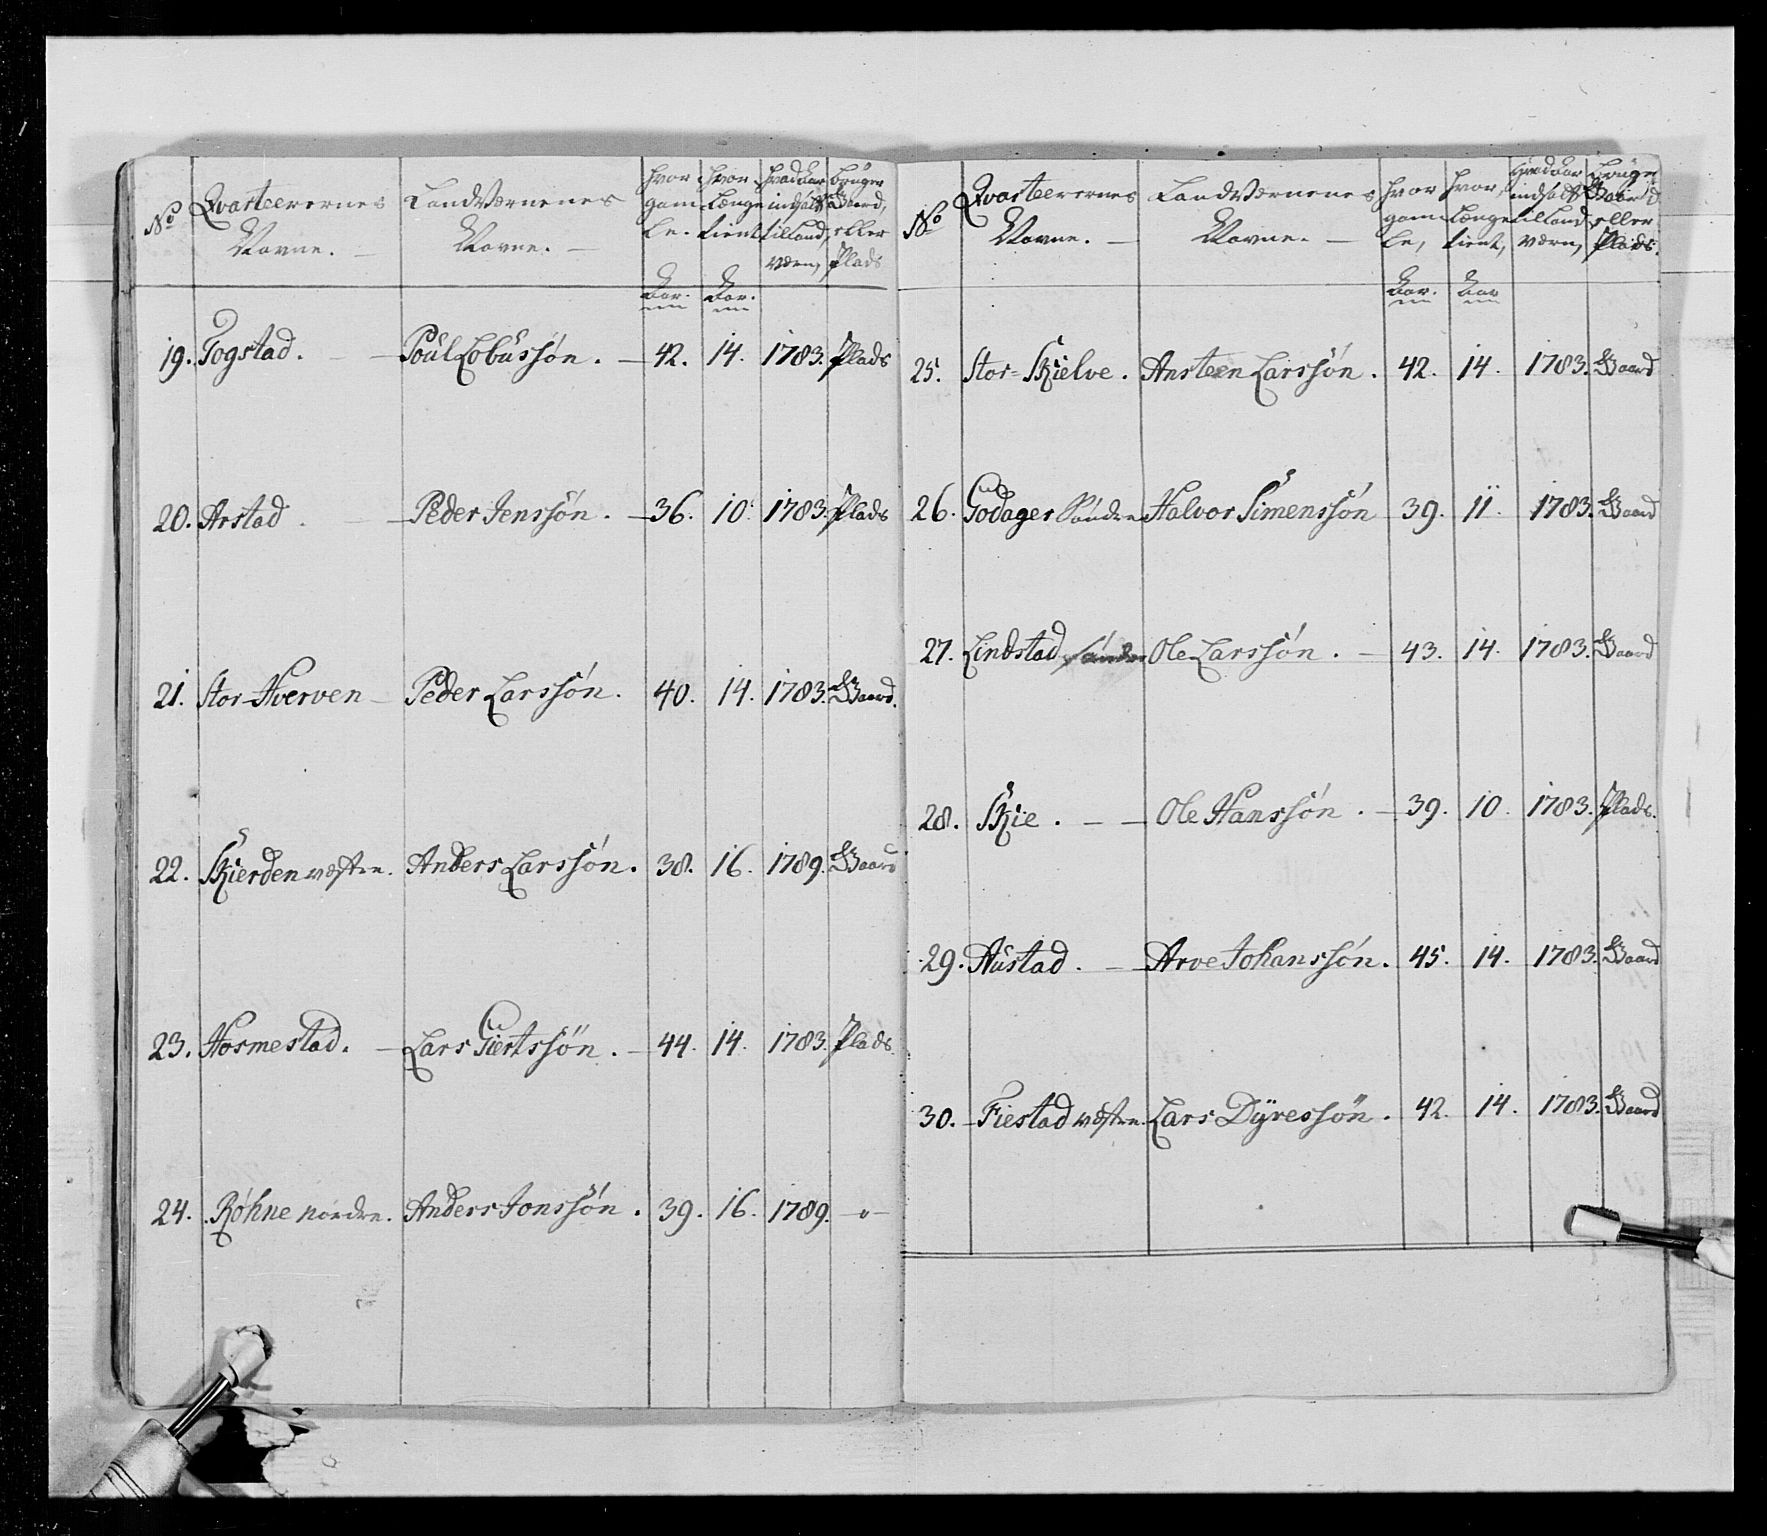 No Qvarteerernes Navne. Landværnenes Navne. hvor gamle. hvor længe tient, hvad aar indsadt til Landværn, bruger Gaard, eller Plads
Aar. Aar.
19. Togstad. Poül Lobüssøn. 42. 14. 1783. Plads
20. Arstad. Peder Jenssøn. 36. 10. 1783. Plads
21. Stor-Hverven Peder Larssøn. 40. 14. 1783. Gaard.
22. Skierden væstre. Anders Larssøn. 38. 16. 1789. Gaard
23. Hosmestad. Lars Giertssøn. 44. 14. 1783. Plads.
24. Røhne nordre. Anders Jonssøn. 39. 16. 1789. -"-
No Qvarteerernes Navne. Landværnenes Navne. hvor gamle, hvor længe tient, hvad aar indsadt til Landværn, bruger Gaard eller Plads.
Aar. Aar
25. Stor-Skielve. Ansteen Larssøn. 42. 14. 1783. Gaard
26. Godager Søndre Halvor Simenssøn 39. 11. 1783. Gaard
27. Lindstad søndre Ole Larssøn. 43. 14. 1783. Gaard
28. Skie. Ole Hanssøn. 39. 10. 1783. Plads.
29. Aüstad. Arve Johanssøn. 45. 14. 1783. Gaard
30. Fiestad væstre. Lars Dÿressøn. 42. 14. 1783. Gaard